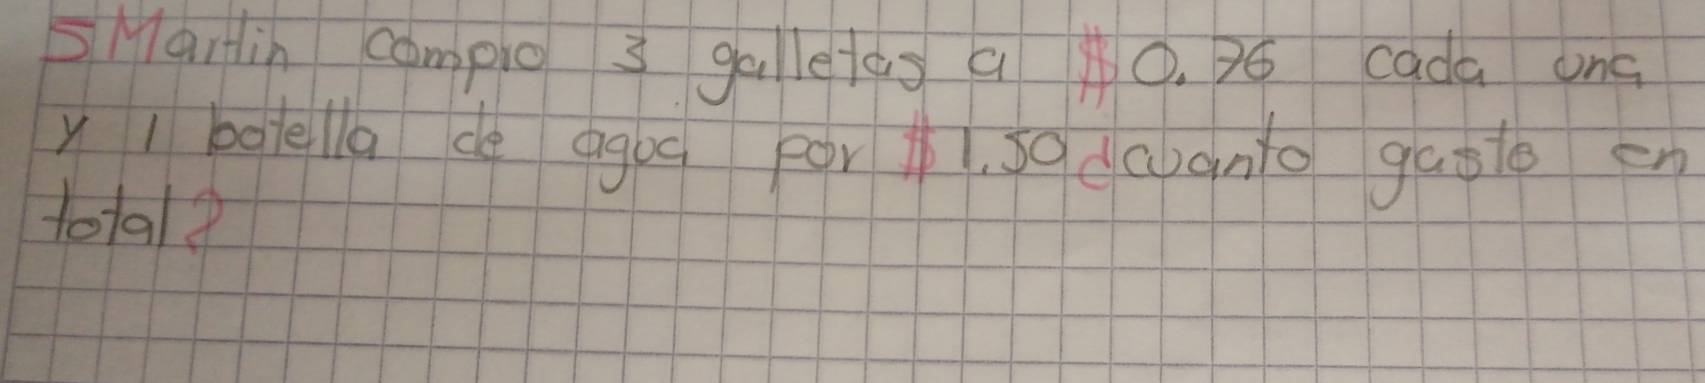 5 Martin compro 3 galletas a $0.76 cada una
y 1 botella de agua por $1.50 ¿cuanto gasto en
total?